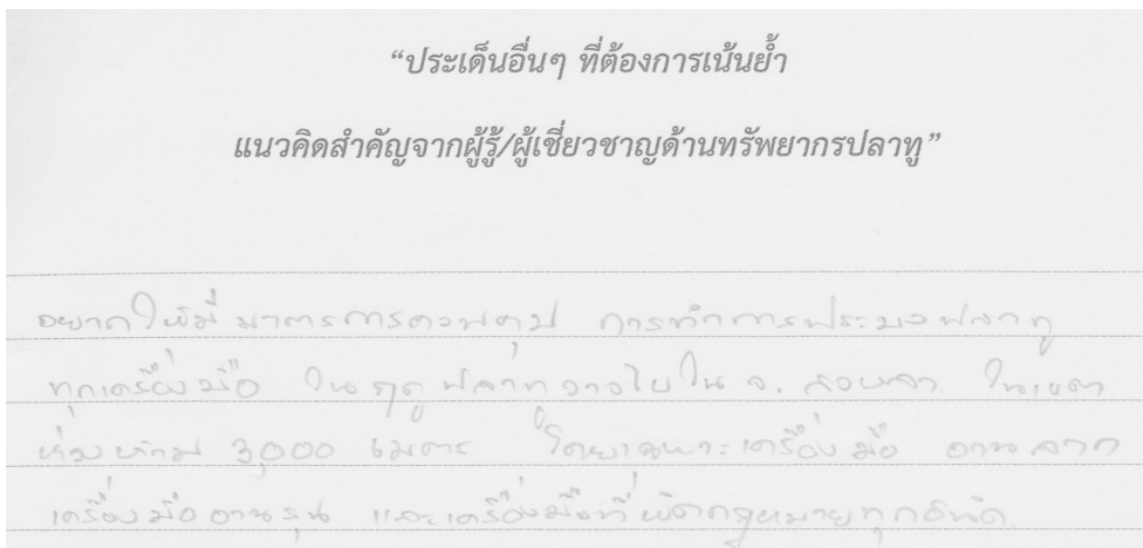 “ประเด็นอื่นๆ ที่ต้องการเน้นย้ำ
แนวคิดสำคัญจากผู้รู้/ผู้เชี่ยวชาญด้านทรัพยากรปลาทู”
อยากให้มี มาตรการควบคุม การทำการประมงปลาทู
ทุกเครื่องมือ ในฤดูปลาทูวางไข่ใน จ. สงขลา ในเขต
ห่างฝั่ง 3,000 เมตร โดยเฉพาะเครื่องมือ อวนลาก
เครื่องมืออวนรุน และเครื่องมือที่ผิดกฎหมายทุกชนิด.